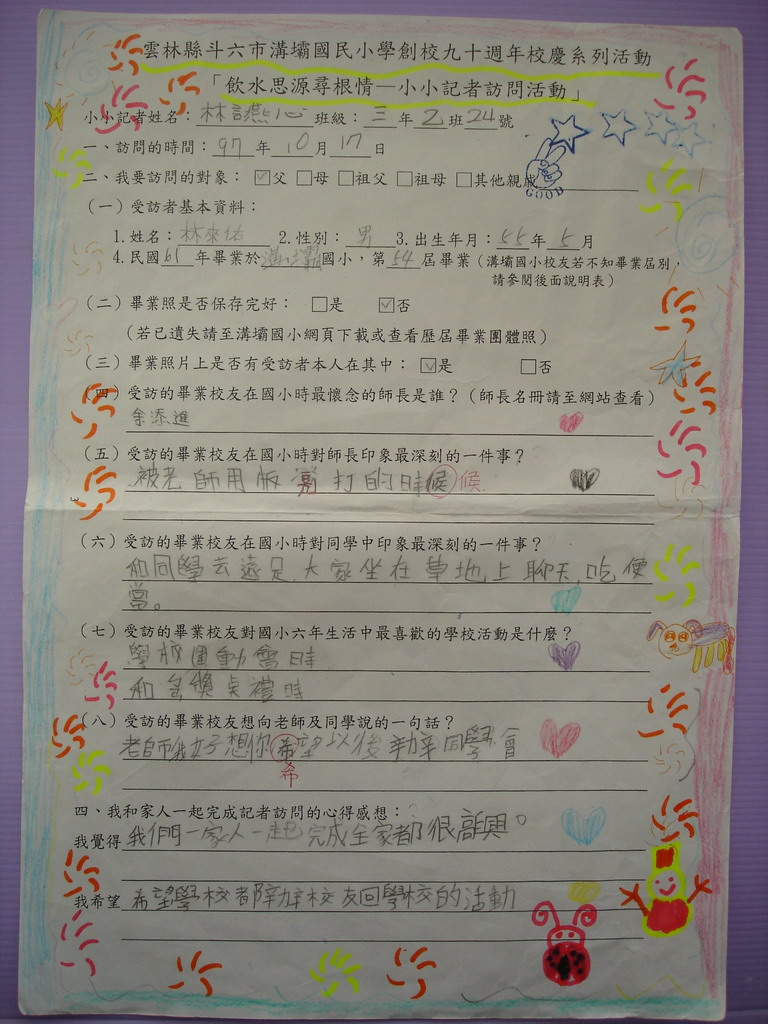 雲林縣斗六市溝壩國民小學創校九十週年校慶系列活動
「飲水思源尋根情—小小記者訪問活動」
小小記者姓名：林語燕心班級：三年乙班24號
一、訪問的時間：97年10月17日
二、我要訪問的對象：☑父□母□祖父□祖母□其他親戚
GOOD
（一）受訪者基本資料：
1.姓名：林來佑 2.性別：男 3.出生年月：55年5月
4.民國61年畢業於溝壩國小，第54屆畢業（溝壩國小校友若不知畢業屆別，
請參閱後面說明表）
（二）畢業照是否保存完好：□是 ☑否
（若已遺失請至溝壩國小網頁下載或查看歷屆畢業團體照）
（三）畢業照片上是否有受訪者本人在其中：☑是 □否
（四）受訪的畢業校友在國小時最懷念的師長是誰？（師長名冊請至網站查看）
余添進
（五）受訪的畢業校友在國小時對師長印象最深刻的一件事？
被老師用版打的時候 候
（六）受訪的畢業校友在國小時對同學中印象最深刻的一件事？
和同學去遠足大家坐在草地上聊天，吃便
當。
（七）受訪的畢業校友對國小六年生活中最喜歡的學校活動是什麼？
學校運動會時
和全獎典禮時
（八）受訪的畢業校友想向老師及同學說的一句話？
老師我好想你希望以後辦同學會
希
四、我和家人一起完成記者訪問的心得感想：
我覺得我們一家人一起完成全家都很高興。
我希望希望學校都辦校友回學校的活動